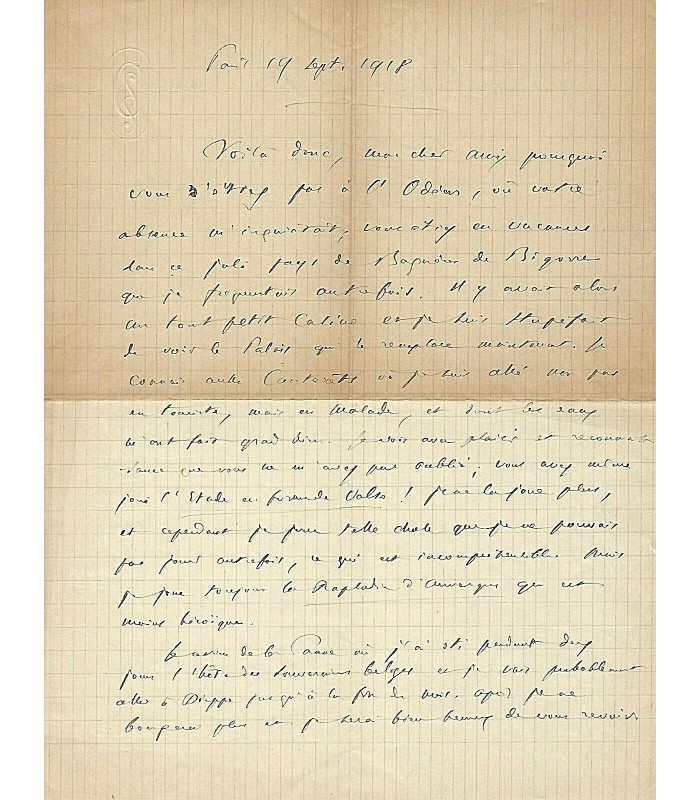 Paris 19 Sept. 1918
Voilà donc, mon cher ami, pourquoi
vous n'étiez pas à l'Odéon, où votre
absence m'inquiétait; vous étiez en vacances
dans ce joli pays de Bagnères de Bigorre
que je fréquentais autrefois. Il y avait alors
un tout petit Casino et je suis stupéfait
de voir le Palais qui le remplace maintenant. Je
connais aussi Cauterets où je suis allé non pas
en touriste, mais en malade, et dont les eaux
m'ont fait grand bien. Je vois avec plaisir et reconnais-
sance que vous ne m'avez pas oublié; vous avez même
joué l'Etude en forme de Valse! je ne la joue plus,
et cependant je joue telle chose que je ne pouvais
pas jouer autrefois, ce qui est incompréhensible. Mais
je joue toujours la Rapsodie d'Auvergne qui est
moins héroïque.
Je reviens de la Panne où j'ai été pendant deux
jours l'hôte des Souverains belges et je vais probablement
aller à Dieppe jusqu'à la fin du mois. Après je ne
bougerai plus et je serai bien heureux de vous revoir.